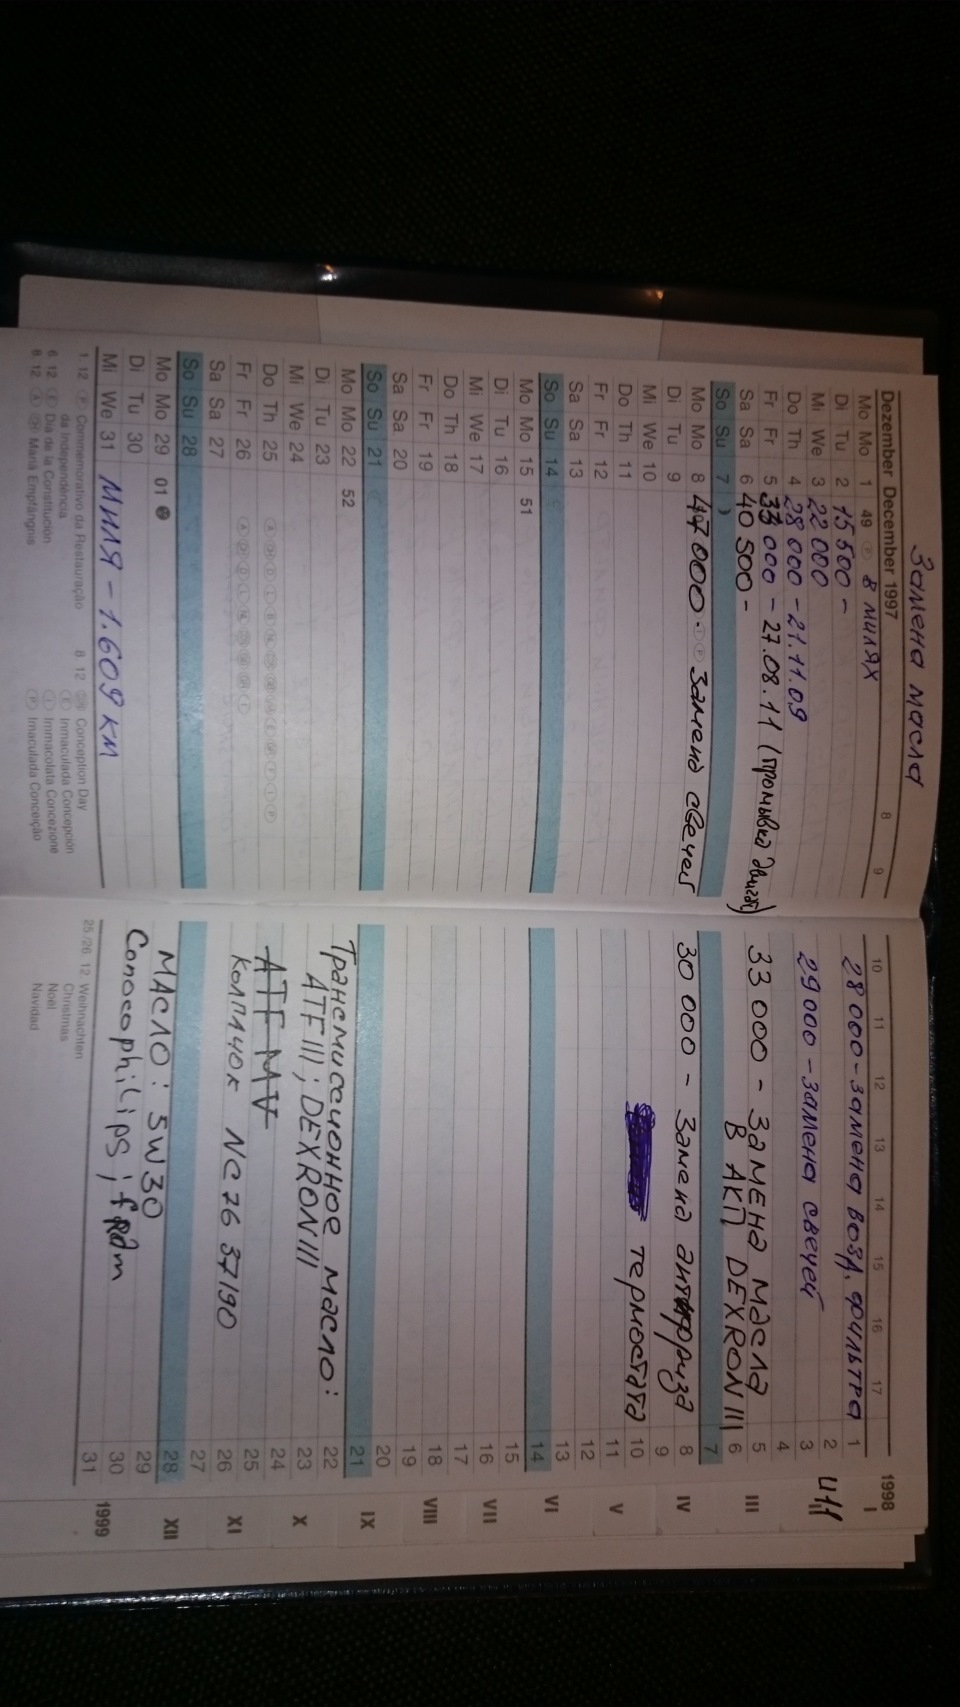 Замена масла
Dezember December 1997
8 9
Mo Mo 1 49 в милях
Di Tu 2 15 500 -
Mi We 3 22 000
Do Th 4 28 000 - 21.11.09
Fr Fr 5 33 000 - 27.08.11 (промывка двигат.)
Sa Sa 6 40 500 -
So Su 7
Mo Mo 8 47 000. Замена свечей
Di Tu 9
Mi We 10
Do Th 11
Fr Fr 12
Sa Sa 13
So Su 14
Mo Mo 15 51
Di Tu 16
Mi We 17
Do Th 18
Fr Fr 19
Sa Sa 20
So Su 21
Mo Mo 22 52
Di Tu 23
Mi We 24
Do Th 25
Fr Fr 26
Sa Sa 27
So Su 28
Mo Mo 29 01
Di Tu 30
Mi We 31 МИЛЯ - 1.609 км
1.12 Ⓟ Commemorativo da Restauração
da Independência
6.12 Ⓔ Día de la Constitución
8.12 Ⓐ ㏊ Mariä Empfängnis
8.12 Conception Day
Ⓔ Inmaculada Concepción
Ⓘ Immacolata Concezione
Ⓟ Imaculada Conceição
10 11 12 13 14 15 16 17
28 000 - замена возд. фильтра 1
2
29000 - замена свечей 3
4
33 000 - Замена масла 5
В АКП DEXRON III 6
7
30 000 - Замена антифриза 8
9
термостата 10
11
12
13
14
15
16
17
18
19
20
21
Трансмиссионное масло: 22
ATF III; DEXRON III 23
24
ATF MV 25
колпачок NC76 37190 26
27
28
МАСЛО: 5W30 29
Conocophilips; 30
31
25./26.12. Weihnachten
Christmas
Noël
Navidad
1998
I
III
IV
V
VI
VII
VIII
IX
X
XI
XII
1999